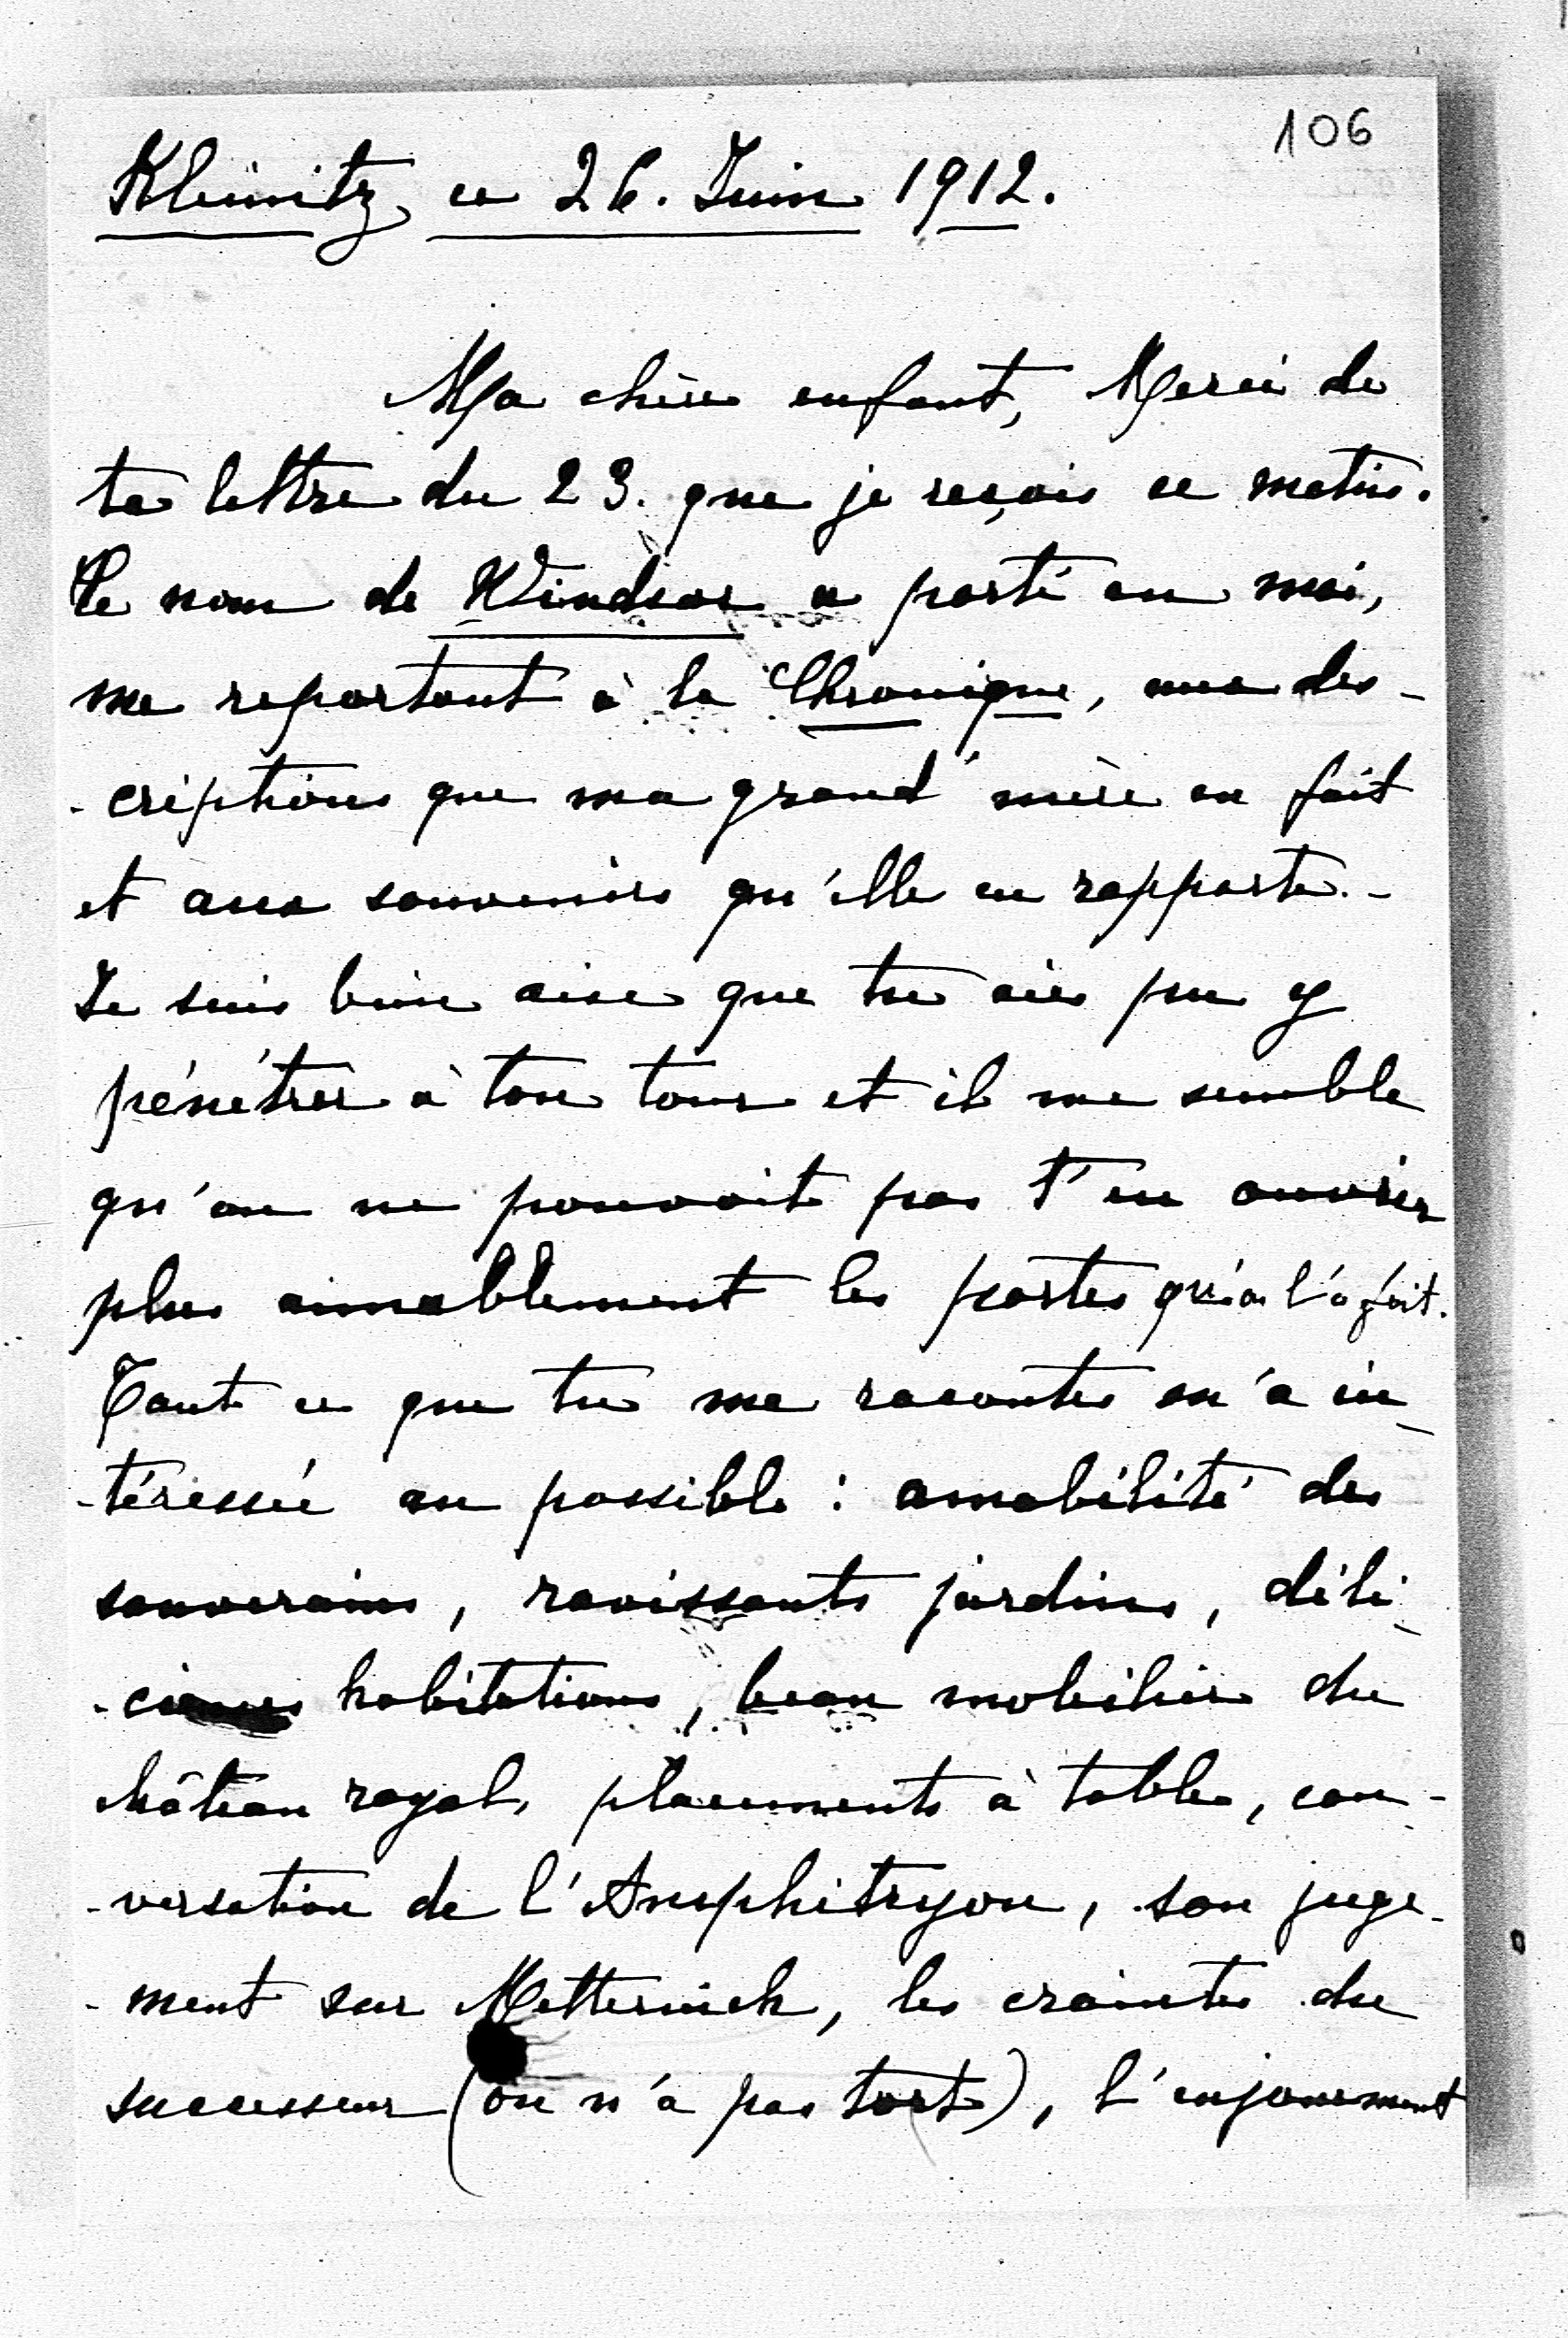 106
Kleinitz, ce 26. Juin 1912.
Ma chère enfant, Merci de
ta lettre du 23. que je reçois ce matin.
Le nom de Windsor a porté en moi,
me reportant à la Chronique, aux des-
-criptions que ma grand'mère en fait
et aux souvenirs qu'elle en rapporte.-
Je suis bien aise que tu aies pu y
pénétrer à ton tour et il me semble
qu'on ne pouvait pas t'en ouvrir
plus aimablement les portes qu'on l'a fait.
Tout ce que tu me racontes m'a in-
-téressée au possible : amabilité des
souverains, ravissants jardins, déli-
-cieuses habitations, beau mobilier du
château royal, placements à table, con-
-versation de l'Amphitryon, son juge-
-ment sur Metternich, les craintes du
successeur (on n'a pas tort), l'enjouement